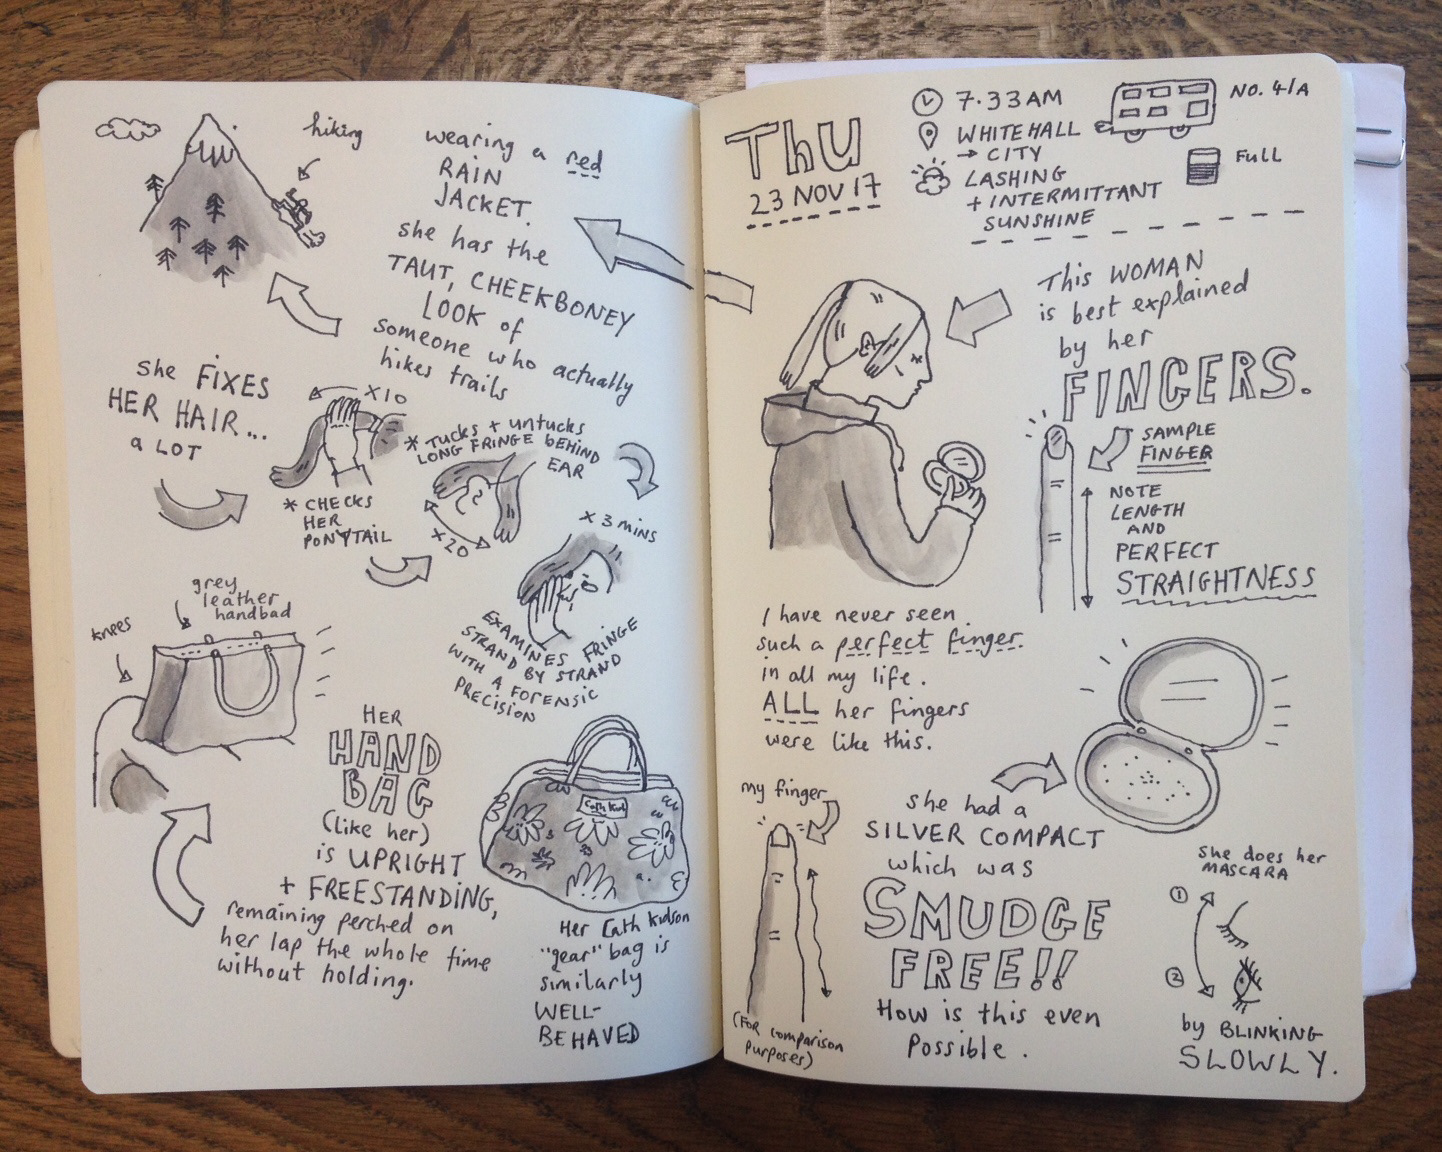 hiking
wearing a red
RAIN
JACKET.
she has the
TAUT, CHEEKBONEY
LOOK of
someone who actually
hikes trails
she FIXES
HER HAIR...
a LOT
X10
* CHECKS
HER
PONYTAIL
* TUCKS + UNTUCKS
LONG FRINGE BEHIND
EAR
X20
X 3 MINS
EXAMINES FRINGE
STRAND BY STRAND
WITH A FORENSIC
PRECISION
grey
leather
handbad
knees
HER
HAND
BAG
(like her)
is UPRIGHT
+ FREESTANDING,
remaining perched on
her lap the whole time
without holding.
Cath Kid
Her Cath Kidson
"gear" bag is
similarly
WELL-
BEHAVED
THU
23 NOV 17
7.33AM
WHITEHALL
→ CITY
LASHING
+ INTERMITTANT
SUNSHINE
NO. 4/A
FULL
This WOMAN
is best explained
by her
FINGERS.
SAMPLE
FINGER
NOTE
LENGTH
AND
PERFECT
STRAIGHTNESS
I have never seen
such a perfect finger.
in all my life.
ALL her fingers
were like this.
my finger
(FOR comparison
purposes)
She had a
SILVER COMPACT
which was
SMUDGE
FREE!!
How is this even
Possible.
She does her
MASCARA
1
2
by BLINKING
SLOWLY.